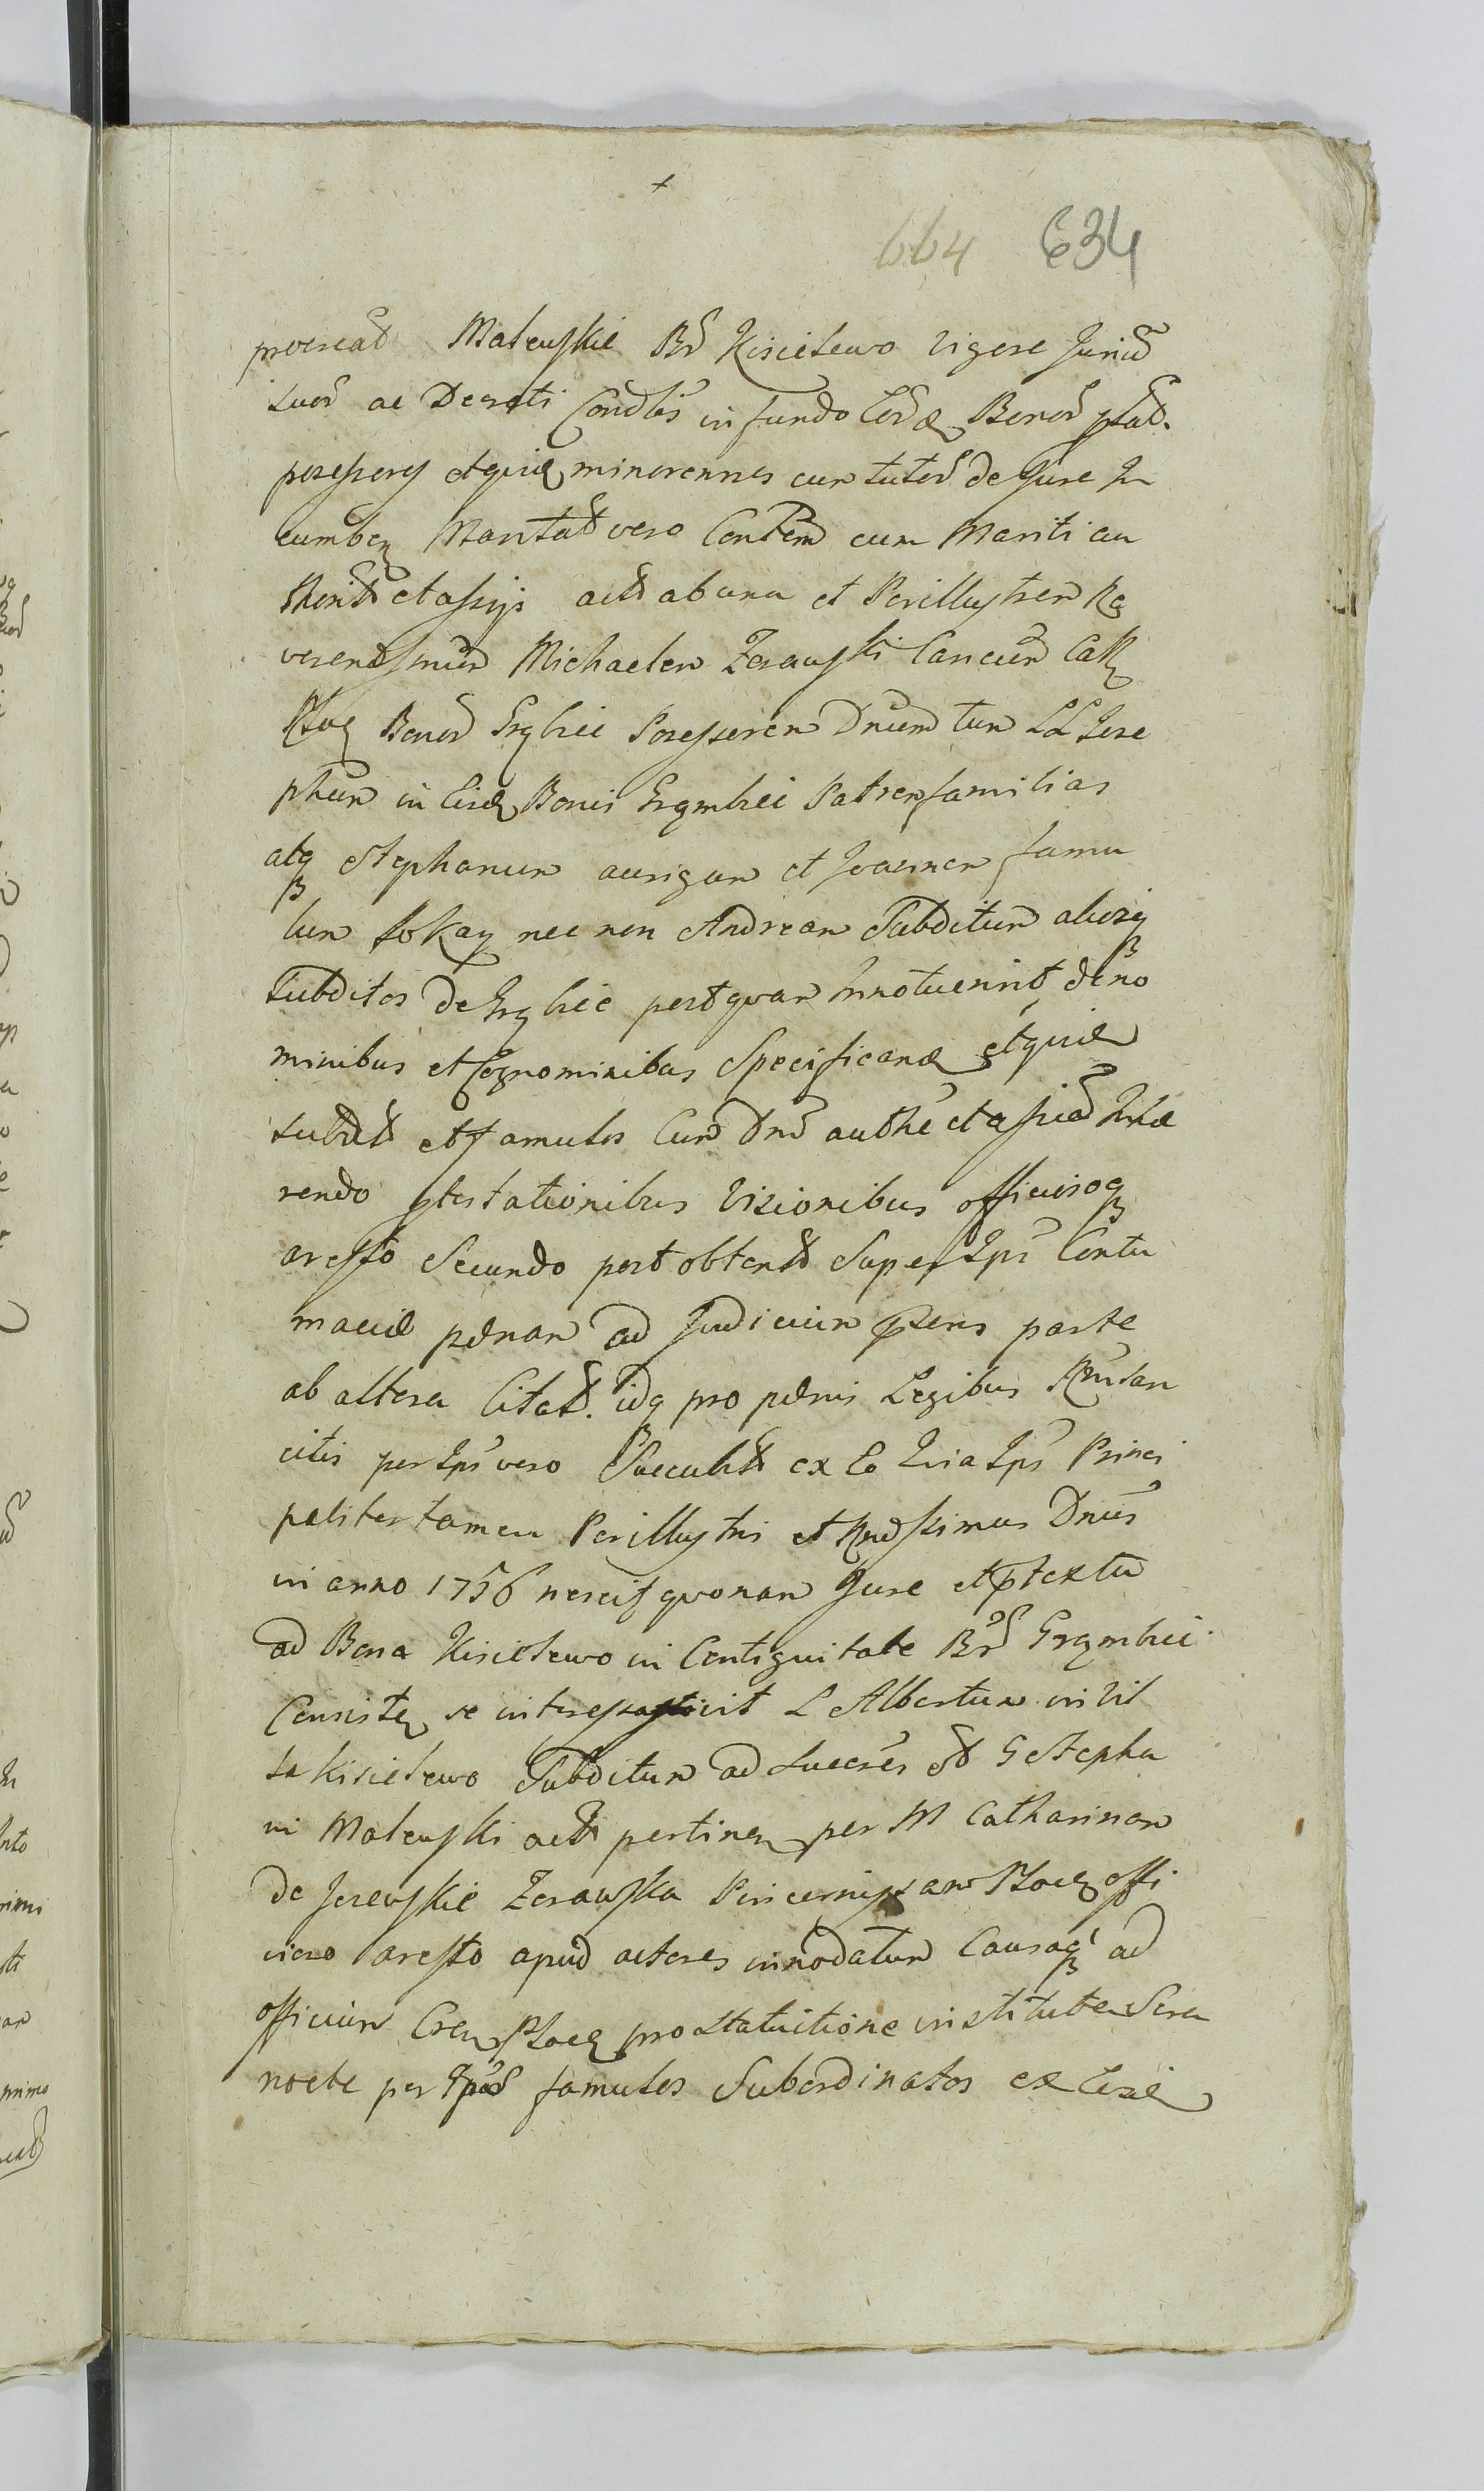 664 634
procreat Maleuskie Br Kisielewo vigore Jurium
suor ac Decreti Condlis in fundo eord Bonor ptat.
possessores atque minorennes cum tutor de Jure In
cumben Maritat vero Conthem cum Mariti au
thorit et assis act ab una et Perillustrem Re
verendssimum Michaelem Zerawski Canoum Cath
Ploc Bonor Srgbrii Possessorem Dnum tum LL Jose
phum in eisd Bonis Srgmbrii Patremfamilias
atq Stephanum aurigam et Joannem famu
lum Lokay nec non Andream Subditum aliosq
Subditos de Srgbrie postquam Innotuerint de no
minibus et Cognominibus Specificand atque
subdit et famulos Cum Dni authe et assist Inhæ
rendo ptestationibus Visionibus officiosoq
aresto Secundo post obtent Super Ips Contu
maciæ pænam ad Judicium psens parte
ab altera Citat. idq pro pænis Legibus Rni san
citis per Ips vero Succubit ex Eo Quia Ips Princi
paliter tamen Perillustris et Rndssimus Dnus
in anno 1756 nescit quonam Jure et ptextu
ad Bona Kisielewo in Contiguitate Br Srgmbrii
Consisten se interessavit L Albertum in Vil
la Kisielewo Subditum ad Succres ol G Stepha
ni Maleuski act pertinen per M Catharinam
de Jezeuskie Zerawska Pincernissam Plocen offi
cioso aresto apud actores innodatum Causaq ad
officium Cren Plocen pro statuitione institutam Sera
nocte per Ipos famulos Subordinatos ex Eisd